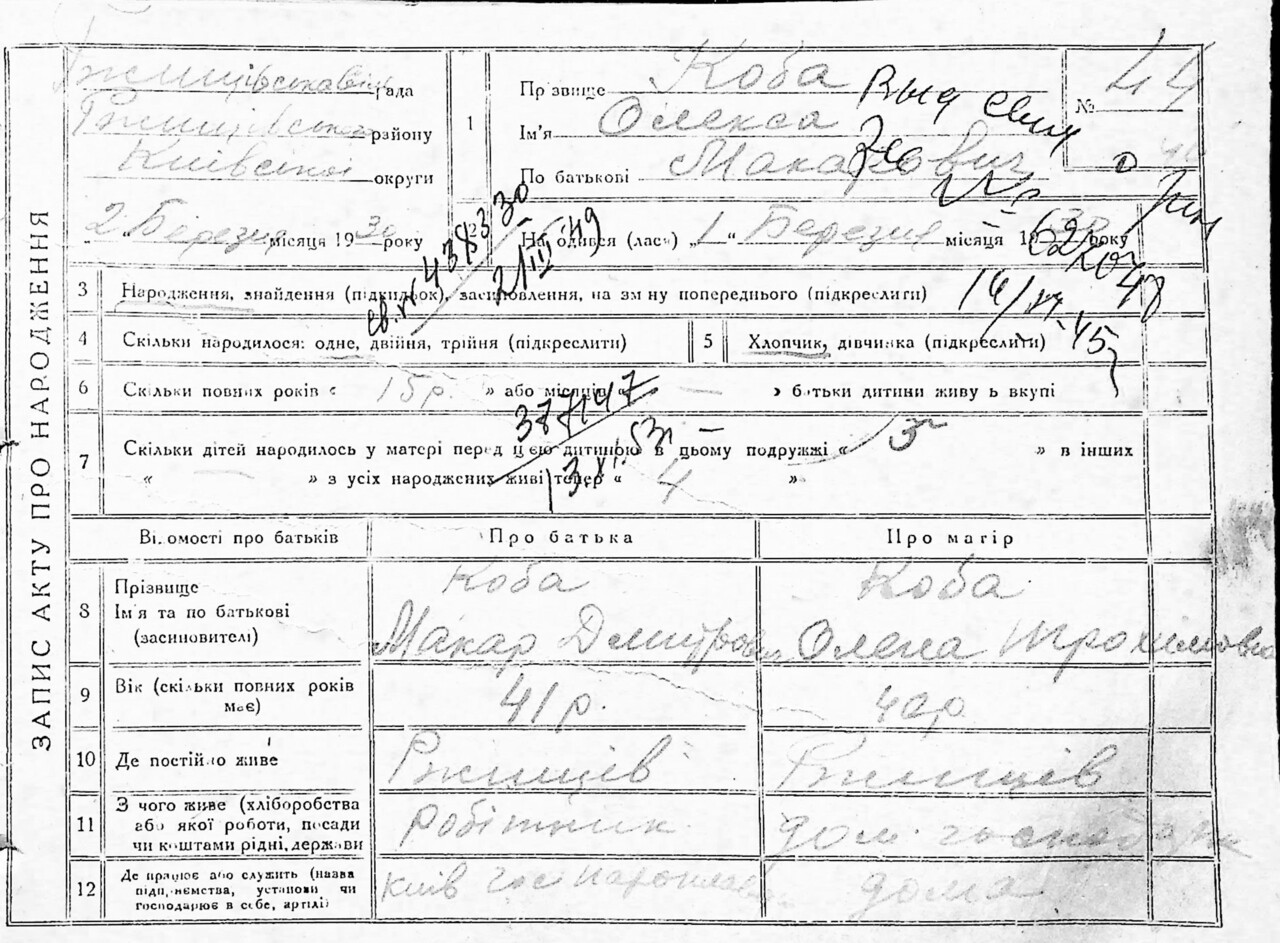 ЗАПИС АКТУ ПРО НАРОДЖЕННЯ
рада
Ржищівського району
Київської округи
"2 Березня місяця 1930 року
1 Прізвище Коба
Ім'я Олекса
По батькові Макарович
№ 44
Выд свид
2 Народився (лась) „1" Березня місяця 1930 року
св. № 43833 30
21/III 49
3 Народження, знайдення (підкидьок), засиновлення, на зміну попереднього (підкреслити)
16/IV-45
4 Скільки народилося: одне, двійня, трійня (підкреслити)
5 Хлопчик, дівчинка (підкреслити)
6 Скільки повних років « 15 р. » або місяців « — » батьки дитини живуть вкупі
7 Скільки дітей народилось у матері перед цією дитиною в цьому подружжі « 3 » в інших
« » з усіх народжених живі тепер « 4 »
Відомості про батьків Про батька Про матір
8 Прізвище Коба Коба
Ім'я та по батькові Макар Дмитрович Олена Трохимовна
(засиновителі)
9 Вік (скільки повних років має) 41 р. 40 р.
10 Де постійно живе Ржищів Ржищів
11 З чого живе (хліборобства
або якої роботи, посади робітник дом. господарк
чи коштами рідні, держави
12 Де працює або служить (назва
підприємства, установи чи Київ дома
господарює в себе, артілі)